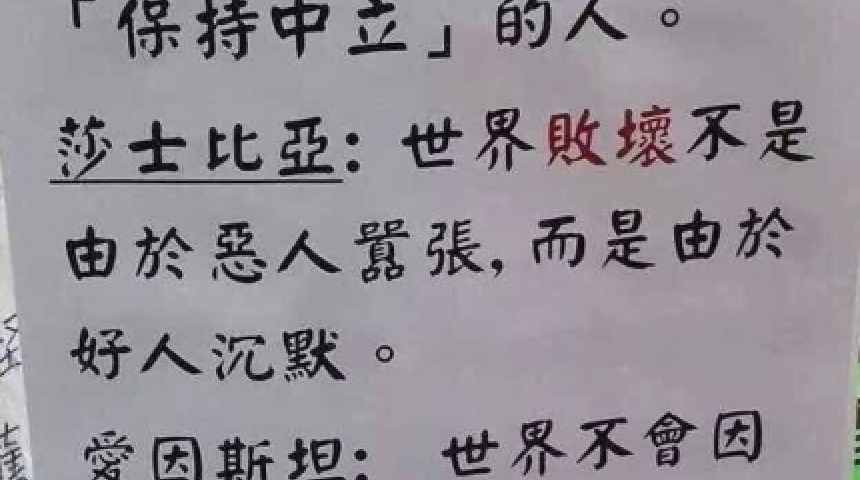 「保持中立」的人。
莎士比亞: 世界敗壞不是
由於惡人囂張, 而是由於
好人沉默。
愛因斯坦: 世界不會因